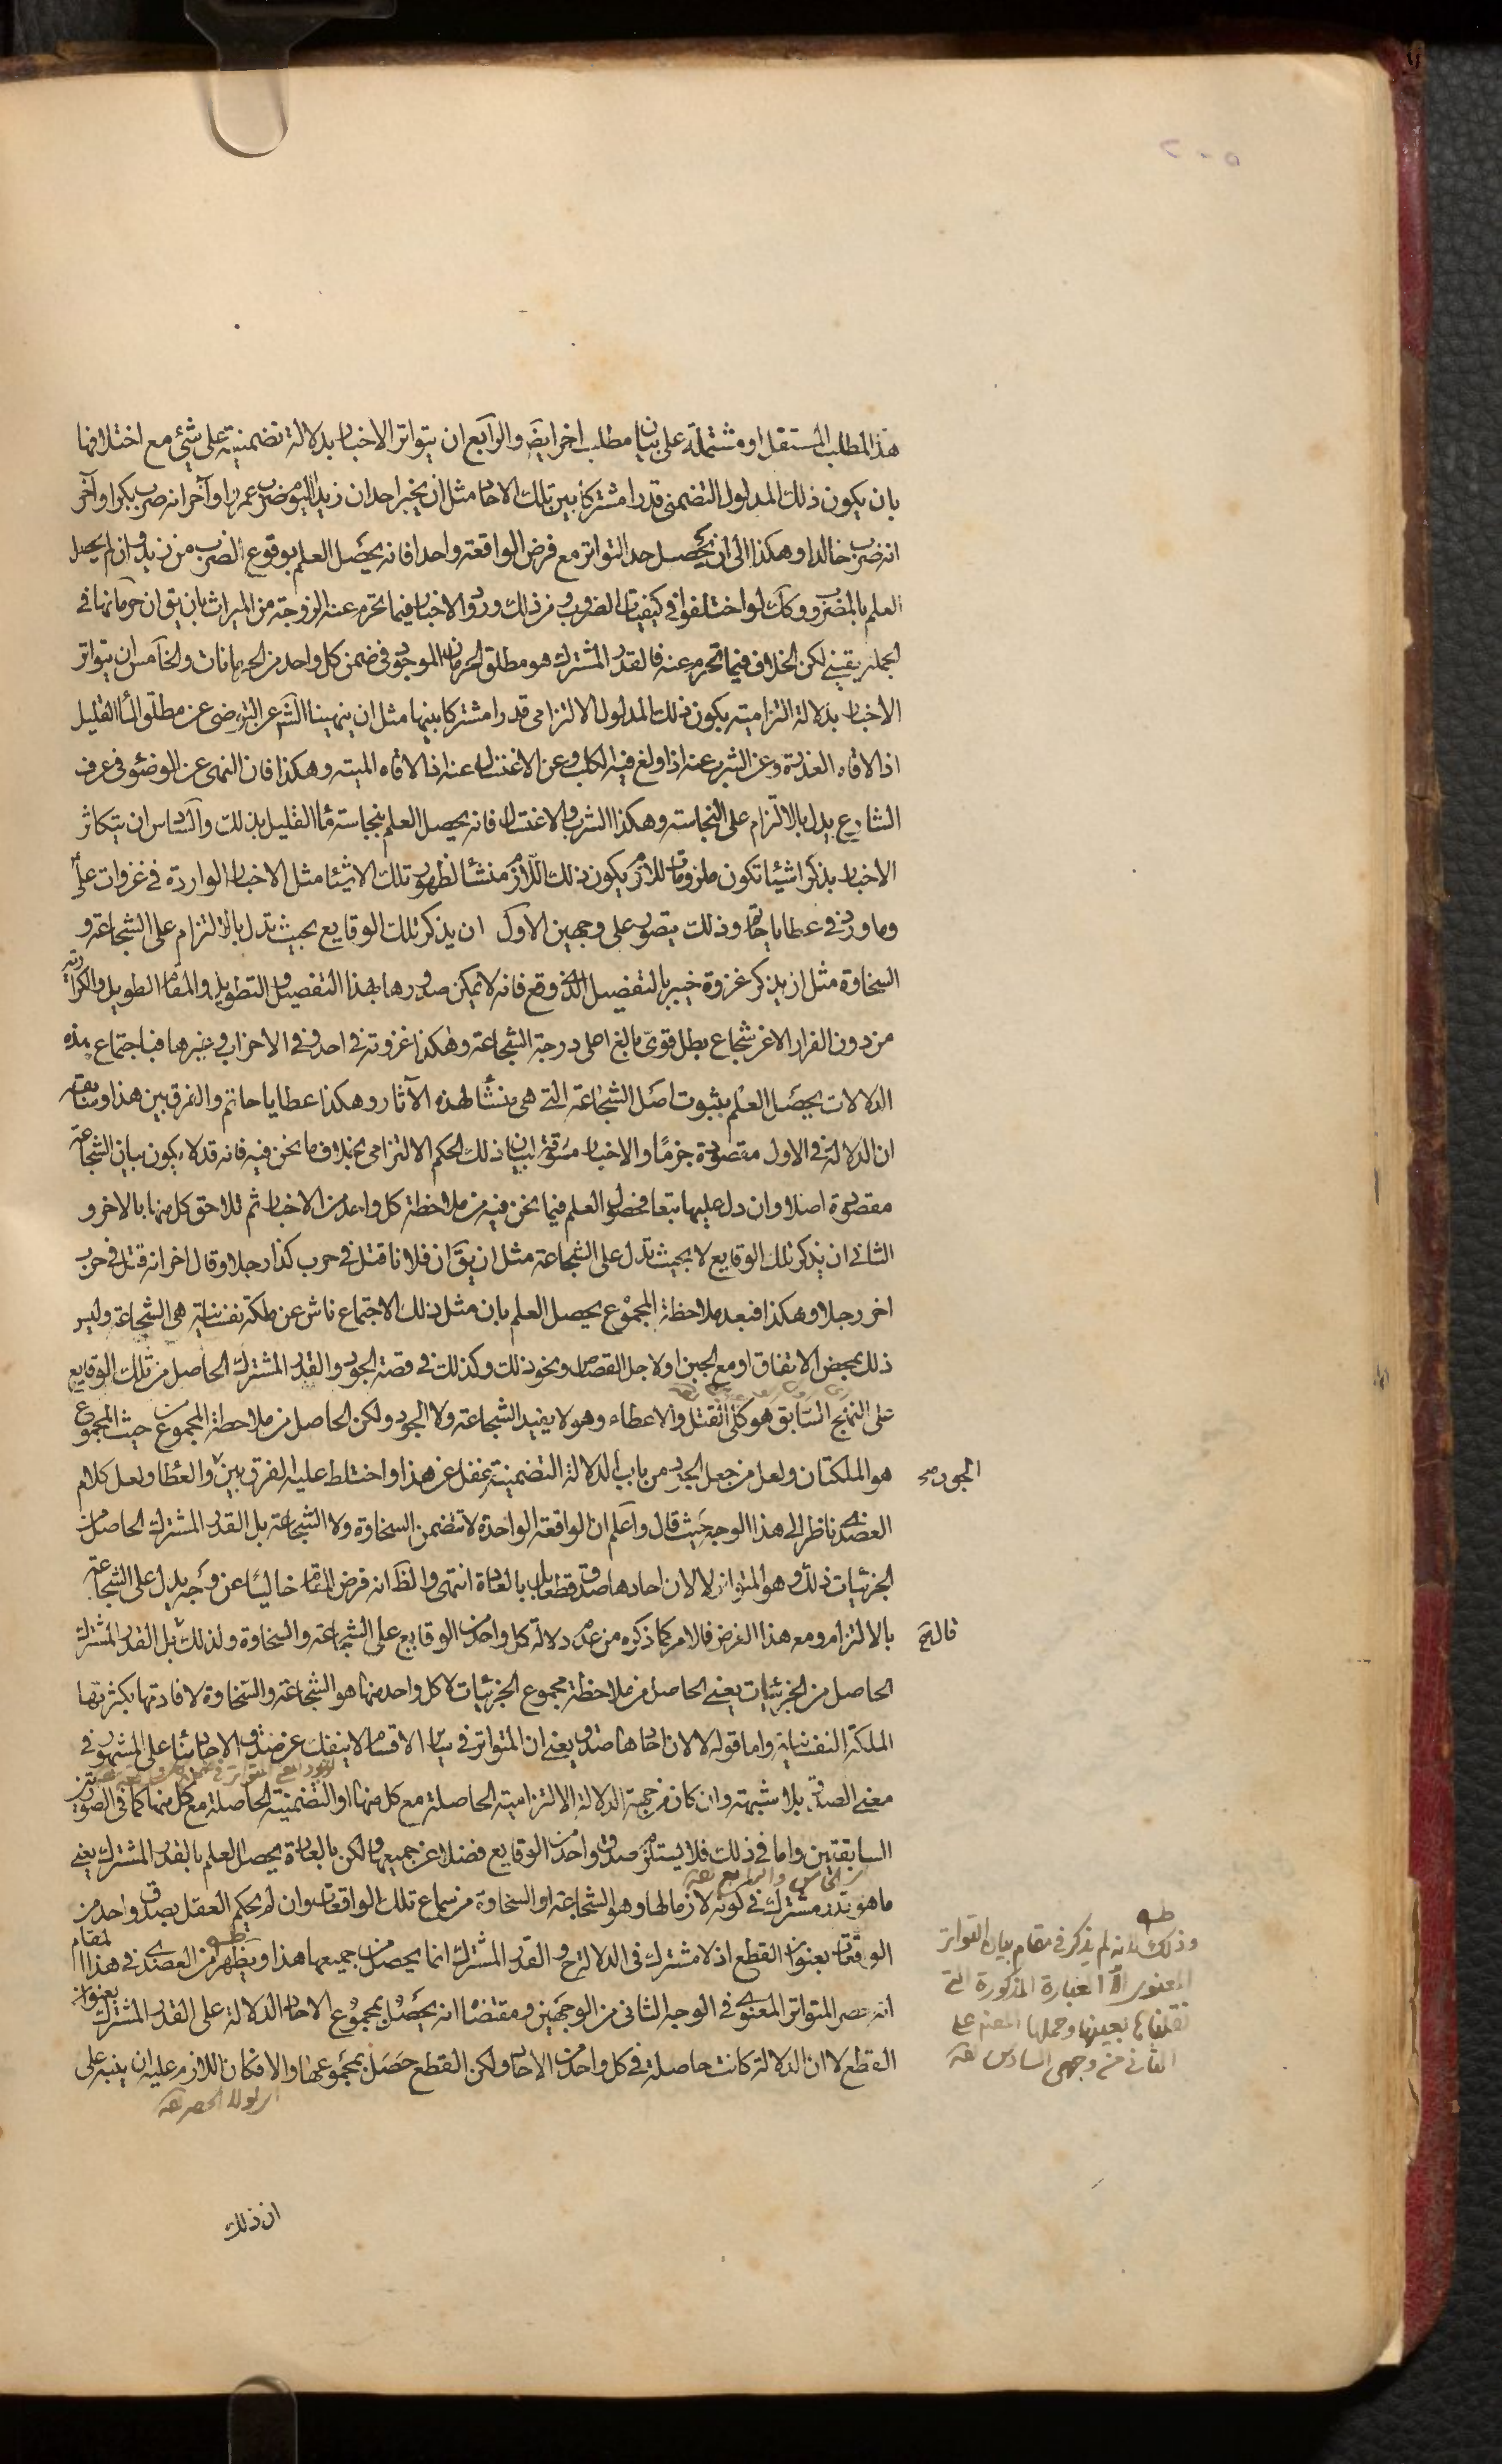 هذا المطلب المستقل او مشتملة على بيان مطلب اخر ايضا والرابع ان يتواتر الاخبار بدلالة تضمنية على شيئ مع اختلافها
بان يكون ذلك المدلول التضمنى قدرا مشتركا بين تلك الاخبار مثل ان يخبر احد ان زيدا اليوم ضرب عمروا وآخر انه ضرب بكرا وآخر
انه ضرب خالدا وهكذا الى ان يحصل حد التواتر مع فرض الواقعة واحدا فانه يحصل العلم بوقوع الضرب من زيد وان لم يحصل
العلم بالمضروب وكك لو اختلفوا فى كيفيات الضرب ومن ذلك ورود الاخبار فيما تحرم عنه الزوجة من الميراث بان يق ان حرمانها فى
الجملة يقينى لكن الخلاف فيما تحرم عنه فالقدر المشترك هو مطلق الحرمان الموجود فى ضمن كل واحد من الحرمانات والخامس ان يتواتر
الاخبار بدلالة التزامية بكون ذلك المدلول الالتزامى قدرا مشتركا بينها مثل ان ينهينا الشرع عن التوضى عن مطلق الماء القليل
اذا لاقاه العذرة وعن الشرب عنه اذا ولغ فيه الكلب وعن الاغتسال عنه اذا لاقاه الميتة وهكذا فان النهى عن الوضوء فى عرف
الشارع يدل بالالتزام على النجاسة وهكذا الشرب والاغتسال فانه يحصل العلم بنجاسة الماء القليل بذلك والسادس ان يتكاثر
الاخبار بذكر اشياء تكون ملزومات للازم يكون ذلك اللازم منشأ لظهور تلك الاشياء مثل الاخبار الواردة فى غزوات على
وما ورد فى عطايا حاتم وذلك يتصور على وجهين الاول ان يذكر تلك الوقايع بحيث تدل بالالتزام على الشجاعة و
السخاوة مثل ان يذكر غزوة خيبر بالتفصيل الذى وقع فانه لا يمكن صدورها بهذا التفصيل والتطويل والمقام الطويل والكرات
من دون الفرار الا عن شجاع بطل قوى بالغ اعلى درجة الشجاعة وهكذا غزوته فى احد وفى الاحزاب وغيرها فباجتماع هذه
الدلالات يحصل العلم بثبوت اصل الشجاعة التى هى منشأ لهذه الآثار وهكذا عطايا حاتم والفرق بين هذا وسابقه
ان الدلالة فى الاول مقصودة جزما والاخبار مسوقة لبيان ذلك الحكم الالتزامى بخلاف ما نحن فيه فانه قد لا يكون بيان الشجاعة
مقصودة اصلا وان دل عليها تبعا فحصول العلم فيما نحن فيه من ملاحظة كل واحد من الاخبار ثم تلاحق كل منها بالاخر و
الثانى ان يذكر تلك الوقايع لا بحيث تدل على الشجاعة مثل ان يق ان فلانا قتل فى حرب كذا رجلا وقال اخر انه قتل فى حرب
اخر رجلا وهكذا فبعد ملاحظة المجموع يحصل العلم بان مثل ذلك الاجتماع ناش عن ملكة نفسانية هى الشجاعة وليس
ذلك بمحض الاتفاق او مع الجبن او لاجل القصاص ونحو ذلك وكذلك فى قصة الجود والقدر المشترك الحاصل من تلك الوقايع
على النهج السابق هو كلى القتل والاعطاء وهو لا يفيد الشجاعة ولا الجود ولكن الحاصل من ملاحظة المجموع من حيث المجموع
هو الملكتان ولعل من جعل الجود من باب الدلالة التضمنية غفل عن هذا واختلط عليه الفرق بين والعطا ولعل كلام
الجود صح
العضدى ناظر الى هذا الوجه حيث قال واعلم ان الواقعة الواحدة لا تتضمن السخاوة ولا الشجاعة بل القدر المشترك الحاصل من
الجزئيات ذلك وهو المتواتر لا لان احادها صدق قطعا بل بالعادة انتهى والظ انه فرض المقام خاليا عن وجه يدل على الشجاعة
بالالتزام ومع هذا الفرض فالامر كما ذكره من عدم دلالة كل واحد من الوقايع على الشجاعة والسخاوة ولذلك بل القدر المشترك
قال صح
الحاصل من الجزئيات يعنى الحاصل من ملاحظة مجموع الجزئيات لا كل واحد منها هو الشجاعة والسخاوة لافادتها بكثرتها
الملكة النفسانية واما قوله لا لان احادها صدق يعنى ان المتواتر فى ساير الاقسام لا ينفك عن صدق الاحاد بناء على المشهور فى
معنى الصدق بلا شبهة وان كان من جهة الدلالة الالتزامية الحاصلة مع كل منها او التضمنية الحاصلة مع كل منها كما فى الصورتين
السابقتين واما فى ذلك فلا يستلزم صدق واحد من الوقايع فضلا عن جميعها ولكن بالعادة يحصل العلم بالقدر المشترك يعنى
ما هو قدر مشترك فى كونه لازما لها وهو الشجاعة او السخاوة من سماع تلك الواقعات وان لم يحكم العقل بصدق واحد من
الواقعات بعنوان القطع اذ لا مشترك فى الدلالة ح والقدر المشترك انما يحصل من جميعها هذا ويظهر من العضدى فى هذا المقام
انه حصر المتواتر المعنوى فى الوجه الثانى من الوجهين ومقتضاه انه يحصل بمجموع الاحاد الدلالة على القدر المشترك بعنوان
القطع لا ان الدلالة كانت حاصلة فى كل واحد من الاحاد ولكن القطع حصل بمجموعها والا فكان اللازم عليه ان ينبه على
وذلك لانه لم يذكر فى مقام بيان التواتر
المعنوى الا العبارة المذكورة التى
نقلناها بعينها وحملها المصنف على
الثانى من وجهى السادس منه
ان ذلك